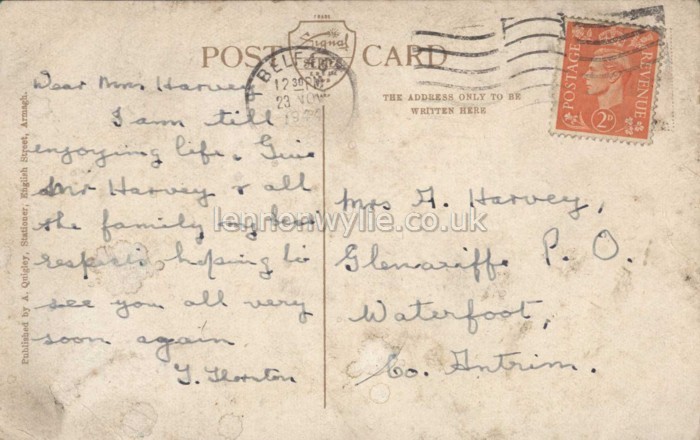 TRADE
Signal
SERIES
POST CARD
BELFAST
12 30 PM
23 NOV
19
POSTAGE REVENUE
2D
THE ADDRESS ONLY TO BE
WRITTEN HERE
Published by A. Quigley, Stationer, English Street, Armagh.
Dear Mrs Harvey
I am till
enjoying life. Give
Mr Harvey & all
the family my best
respects hoping to
see you all very
soon again
T. Thornton
Mrs A. Harvey,
Glenariffe P. O.
Waterfoot,
Co. Antrim.
lennonwylie.co.uk